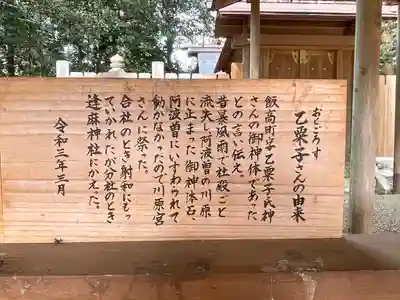 おところす
乙栗子さんの由来
飯高町字乙栗子氏神
さんの御神体であった
との言い伝え。
昔暴風雨で社殿ごと
流失し阿波曽の川原
に止まった御神体石、
阿波曽にいすわられて
動かなかったので川原宮
さんに祭った。
合社のとき射和にもっ
ていかれたが分社のとき
逢麻神社にかえった。
令和三年三月